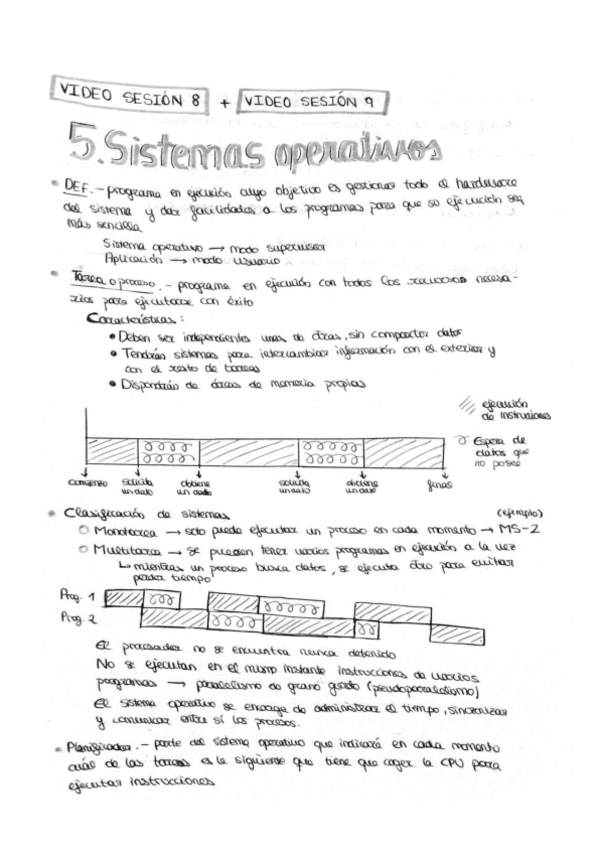 VIDEO SESIÓN 8 + VIDEO SESIÓN 9
5. Sistemas operativos
DEF. - programa en ejecución cuyo objetivo es gestionar todo el hardware
del sistema y dar facilidades a los programas para que su ejecución sea
más sencilla
Sistema operativo → modo supervisor
Aplicación → modo usuario
Tarea o proceso. - programa en ejecución con todos los recursos necesa-
rios para ejecutarse con éxito
Características:
Deben ser independientes unas de otras, sin compartir datos
Tendrán sistemas para intercambiar información con el exterior y
con el resto de tareas
Dispondrán de áreas de memoria propias
ejecución
de instrucciones
Espera de
datos que
no posee
comienzo solicita un dato obtiene un dato solicita un dato obtiene un dato
Clasificación de sistemas (ejemplo)
Monotarea → solo puede ejecutar un proceso en cada momento → MS-2
Multitarea → se pueden tener varios programas en ejecución a la vez
↳ mientras un proceso busca datos, se ejecuta otro para evitar
perder tiempo
Prog. 1
Prog. 2
El procesador no se encuentra nunca detenido
No se ejecutan en el mismo instante instrucciones de varios
programas → paralelismo de grano grueso (pseudoparalelismo)
El sistema operativo se encarga de administrar el tiempo, sincronizar
y comunicar entre sí los procesos.
Planificador. - parte del sistema operativo que indicará en cada momento
cuál de las tareas es la siguiente que tiene que coger la CPU para
ejecutar instrucciones